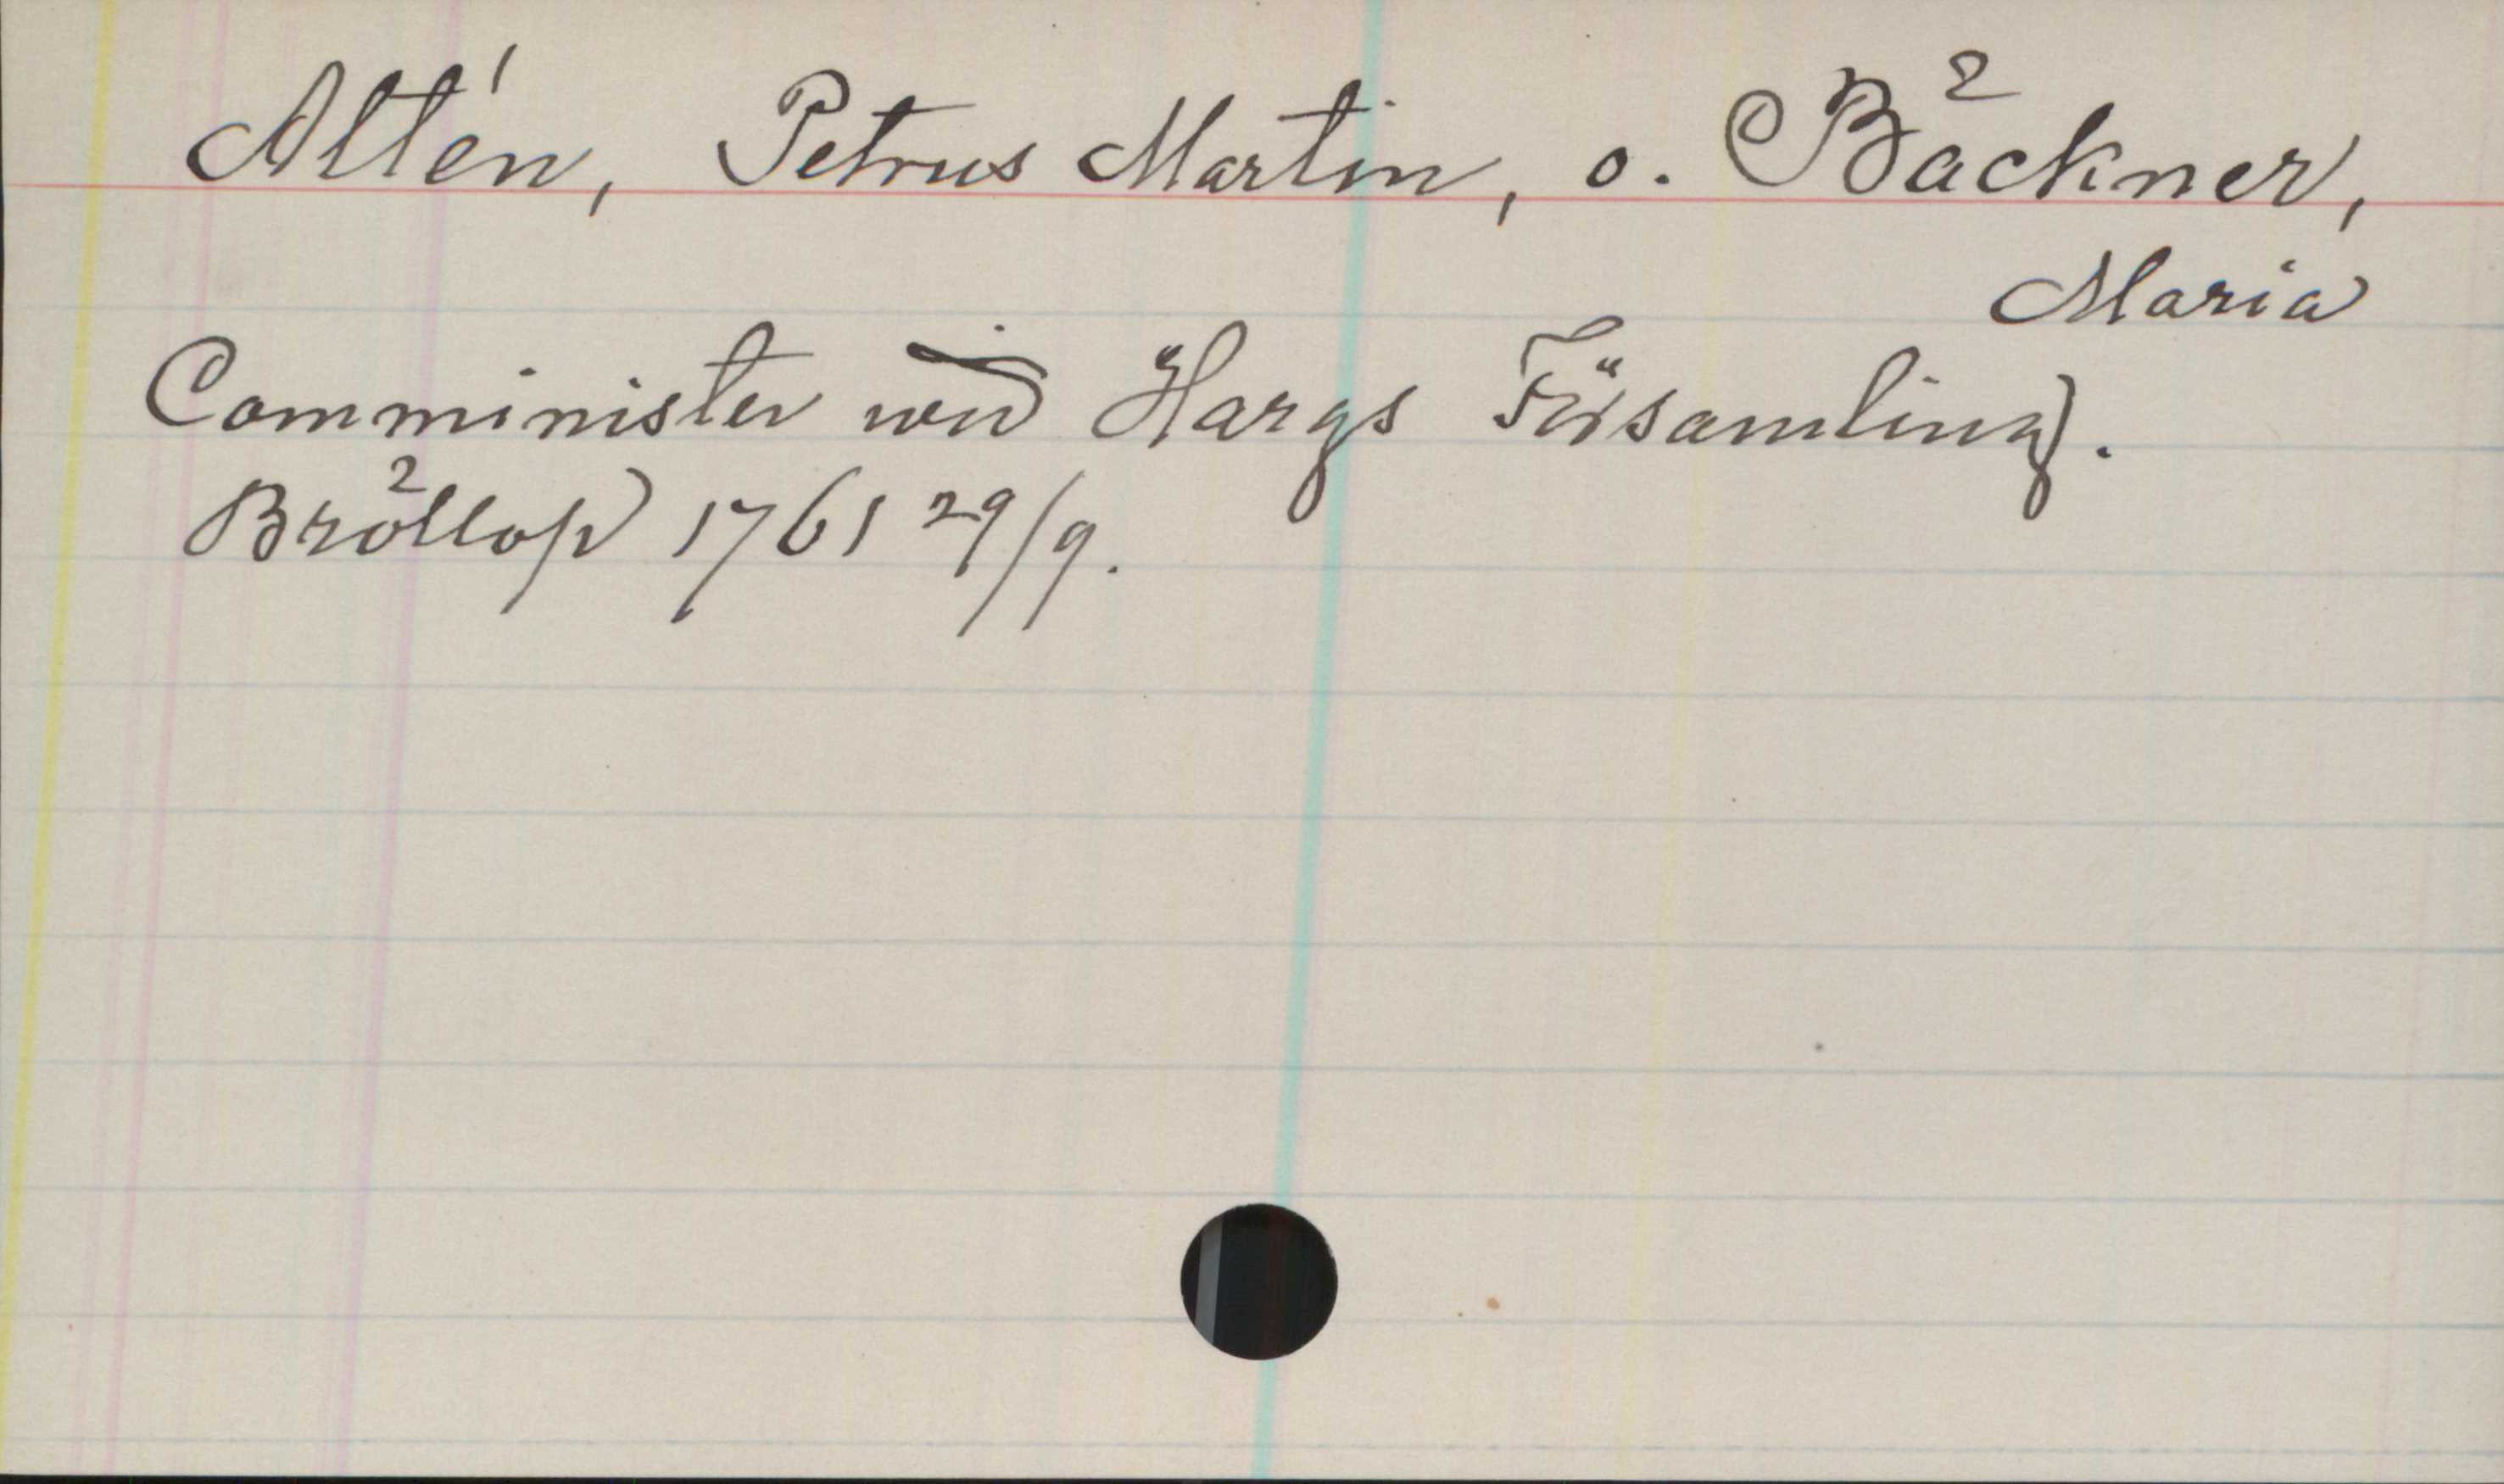 Altén, Petrus Martin, o. Bäckner,
Maria
Comminister wid Hargs Församling.
Bröllop 1761 29/9.